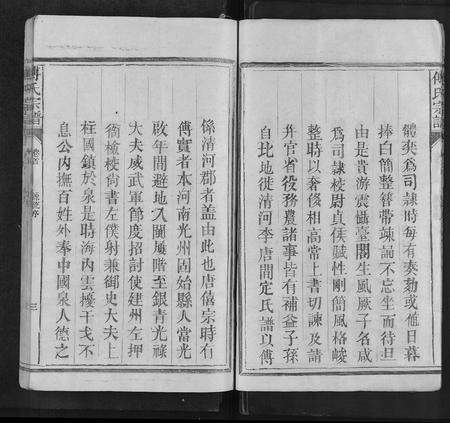 傅氏宗譜
體奕爲司隸時每有奏劾或值日暮
捧白簡整簪帶竦誦不忘坐而待旦
由是貴游震懾臺閣生風厥子名咸
爲司隸校尉貞僕賦性剛簡風格峻
整時以奢侈相高常上書切諫及請
并官省役務農諸事皆有補益子孫
自北地徙清河李唐開定氏譜以傅
係清河郡者蓋由此也唐僖宗時有
傅實者本河南光州固始縣人當光
啟年間避地入閩屢階至銀青光祿
大夫威武軍節度招討使建州左押
衙檢校尚書左僕射兼御史大夫上
柱國鎮於泉是時海內雲擾干戈不
息公內撫百姓外奉中國泉人德之
傅氏宗譜
卷首
三